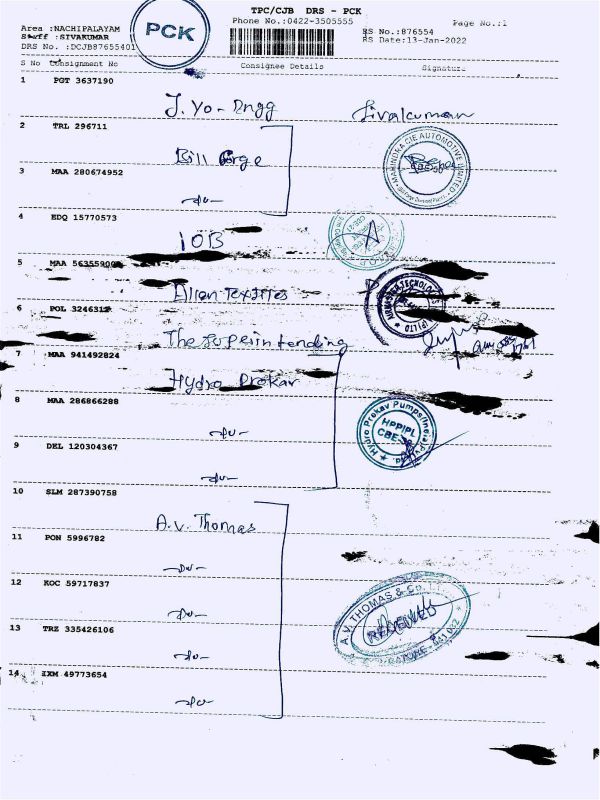 TPC/CJB DRS - PCK
Phone No.:0422-3505555
Page No.:1
Area :NACHIPALAYAM
PCK
RS No.:876554
Staff :SIVAKUMAR
RS Date:13-Jan-2022
DRS No. :DCJB87655401
S No Consignment No Consignee Details Signature
1 PGT 3637190
J. Yo- Engg Sivakumar
2 TRL 296711
Bill Forge
MAHINDRA CIE AUTOMOTIVE LIMITED
3 MAA 280674952
-do-
4 EDQ 15770573
IOB
5 MAA 56355900
Allen Textiles
6 POL 3246312
The Superintending
7 MAA 941492824
Hydro Prokav
8 MAA 286866288
-do-
Hydro Prokav Pumps(India)Pvt.Ltd.
HPPIPL
9 DEL 120304367
-do-
10 SLM 287390758
A.V. Thomas
11 PON 5996782
-do-
12 KOC 59717837
-do-
A.V. THOMAS & Co.
RECEIVED
13 TRZ 335426106
-do-
14 IXM 49773654
-do-